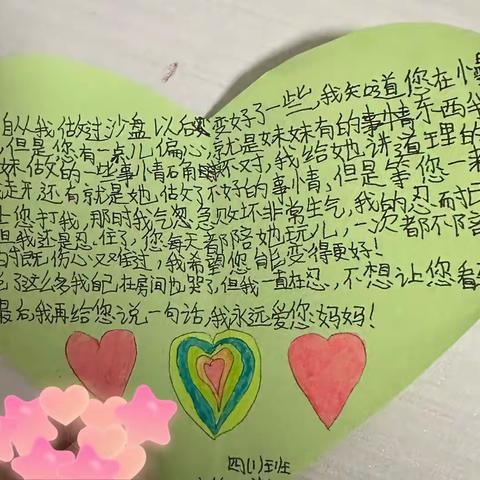 自从我做过沙盘以后变好了一些,我知道您在慢
,但是您有一点儿偏心,就是妹妹有的事情东西我
妹做的一些事情确实不对,我给她讲道理的
走开还有就是她做了不好的事情,但是等您一来
让您打我,那时我气急败坏非常生气,我的忍耐
但我还是忍住了,您每天都陪她玩儿,一次都不陪
时既伤心又难过,我希望您能变得更好!
了这么多我自己在房间也哭了,但我一直在忍,不想让您看
最后,我再给您说一句话,我永远爱您,妈妈!
四(1)班